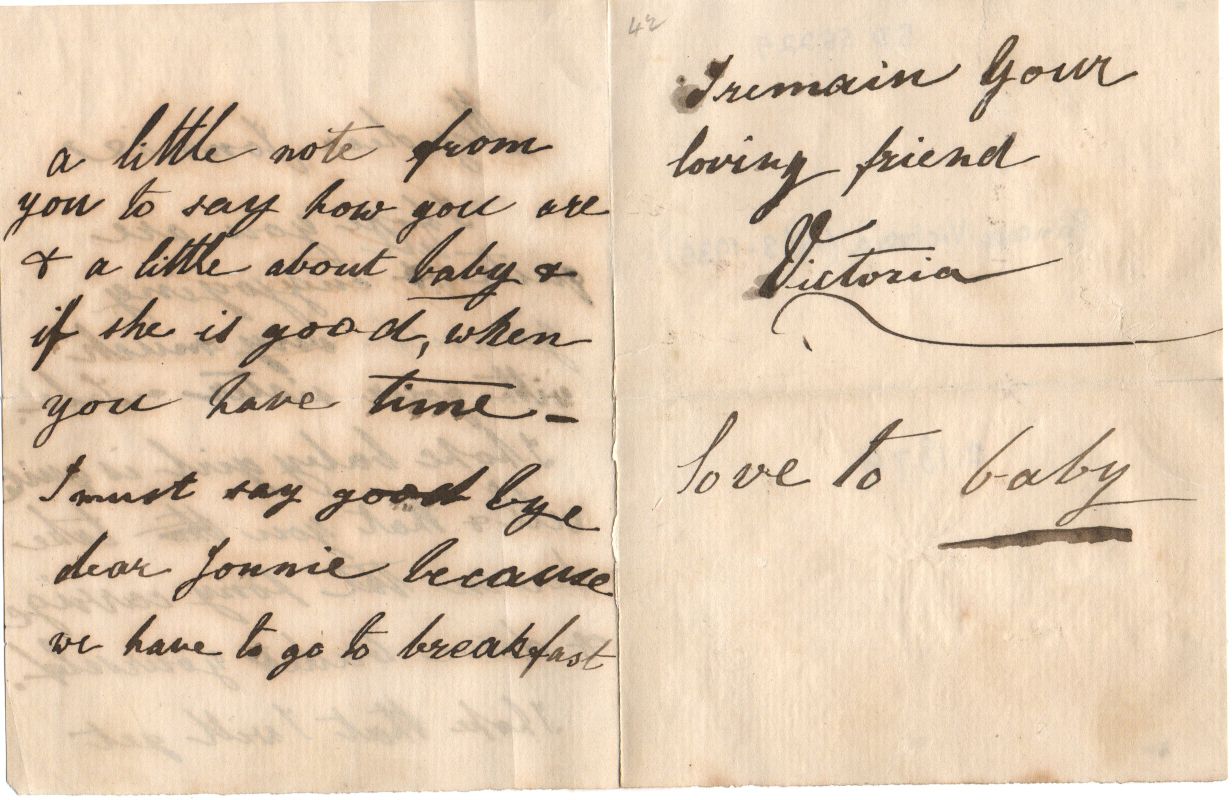 a little note from
you to say how you are
& a little about baby &
if she is good, when
you have time –
I must say good bye
dear Jonnie because
we have to go to breakfast
42
I remain Your
loving friend
Victoria
love to baby